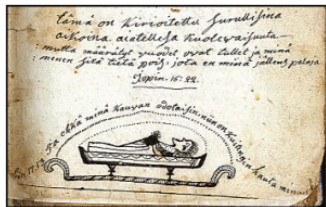 Tämä on kirjoitettu surullisina
aikoina aiatellesa kuolevaisuuta
mutta määrätyt vuodet ovat tullet ja minä
menen sitä tietä pois, jota en minä jällens palaja
Jopin. 16: 22.
17.13. Ja ehkä minä kauvan odotaisin, niin on kuitengin hauta minun